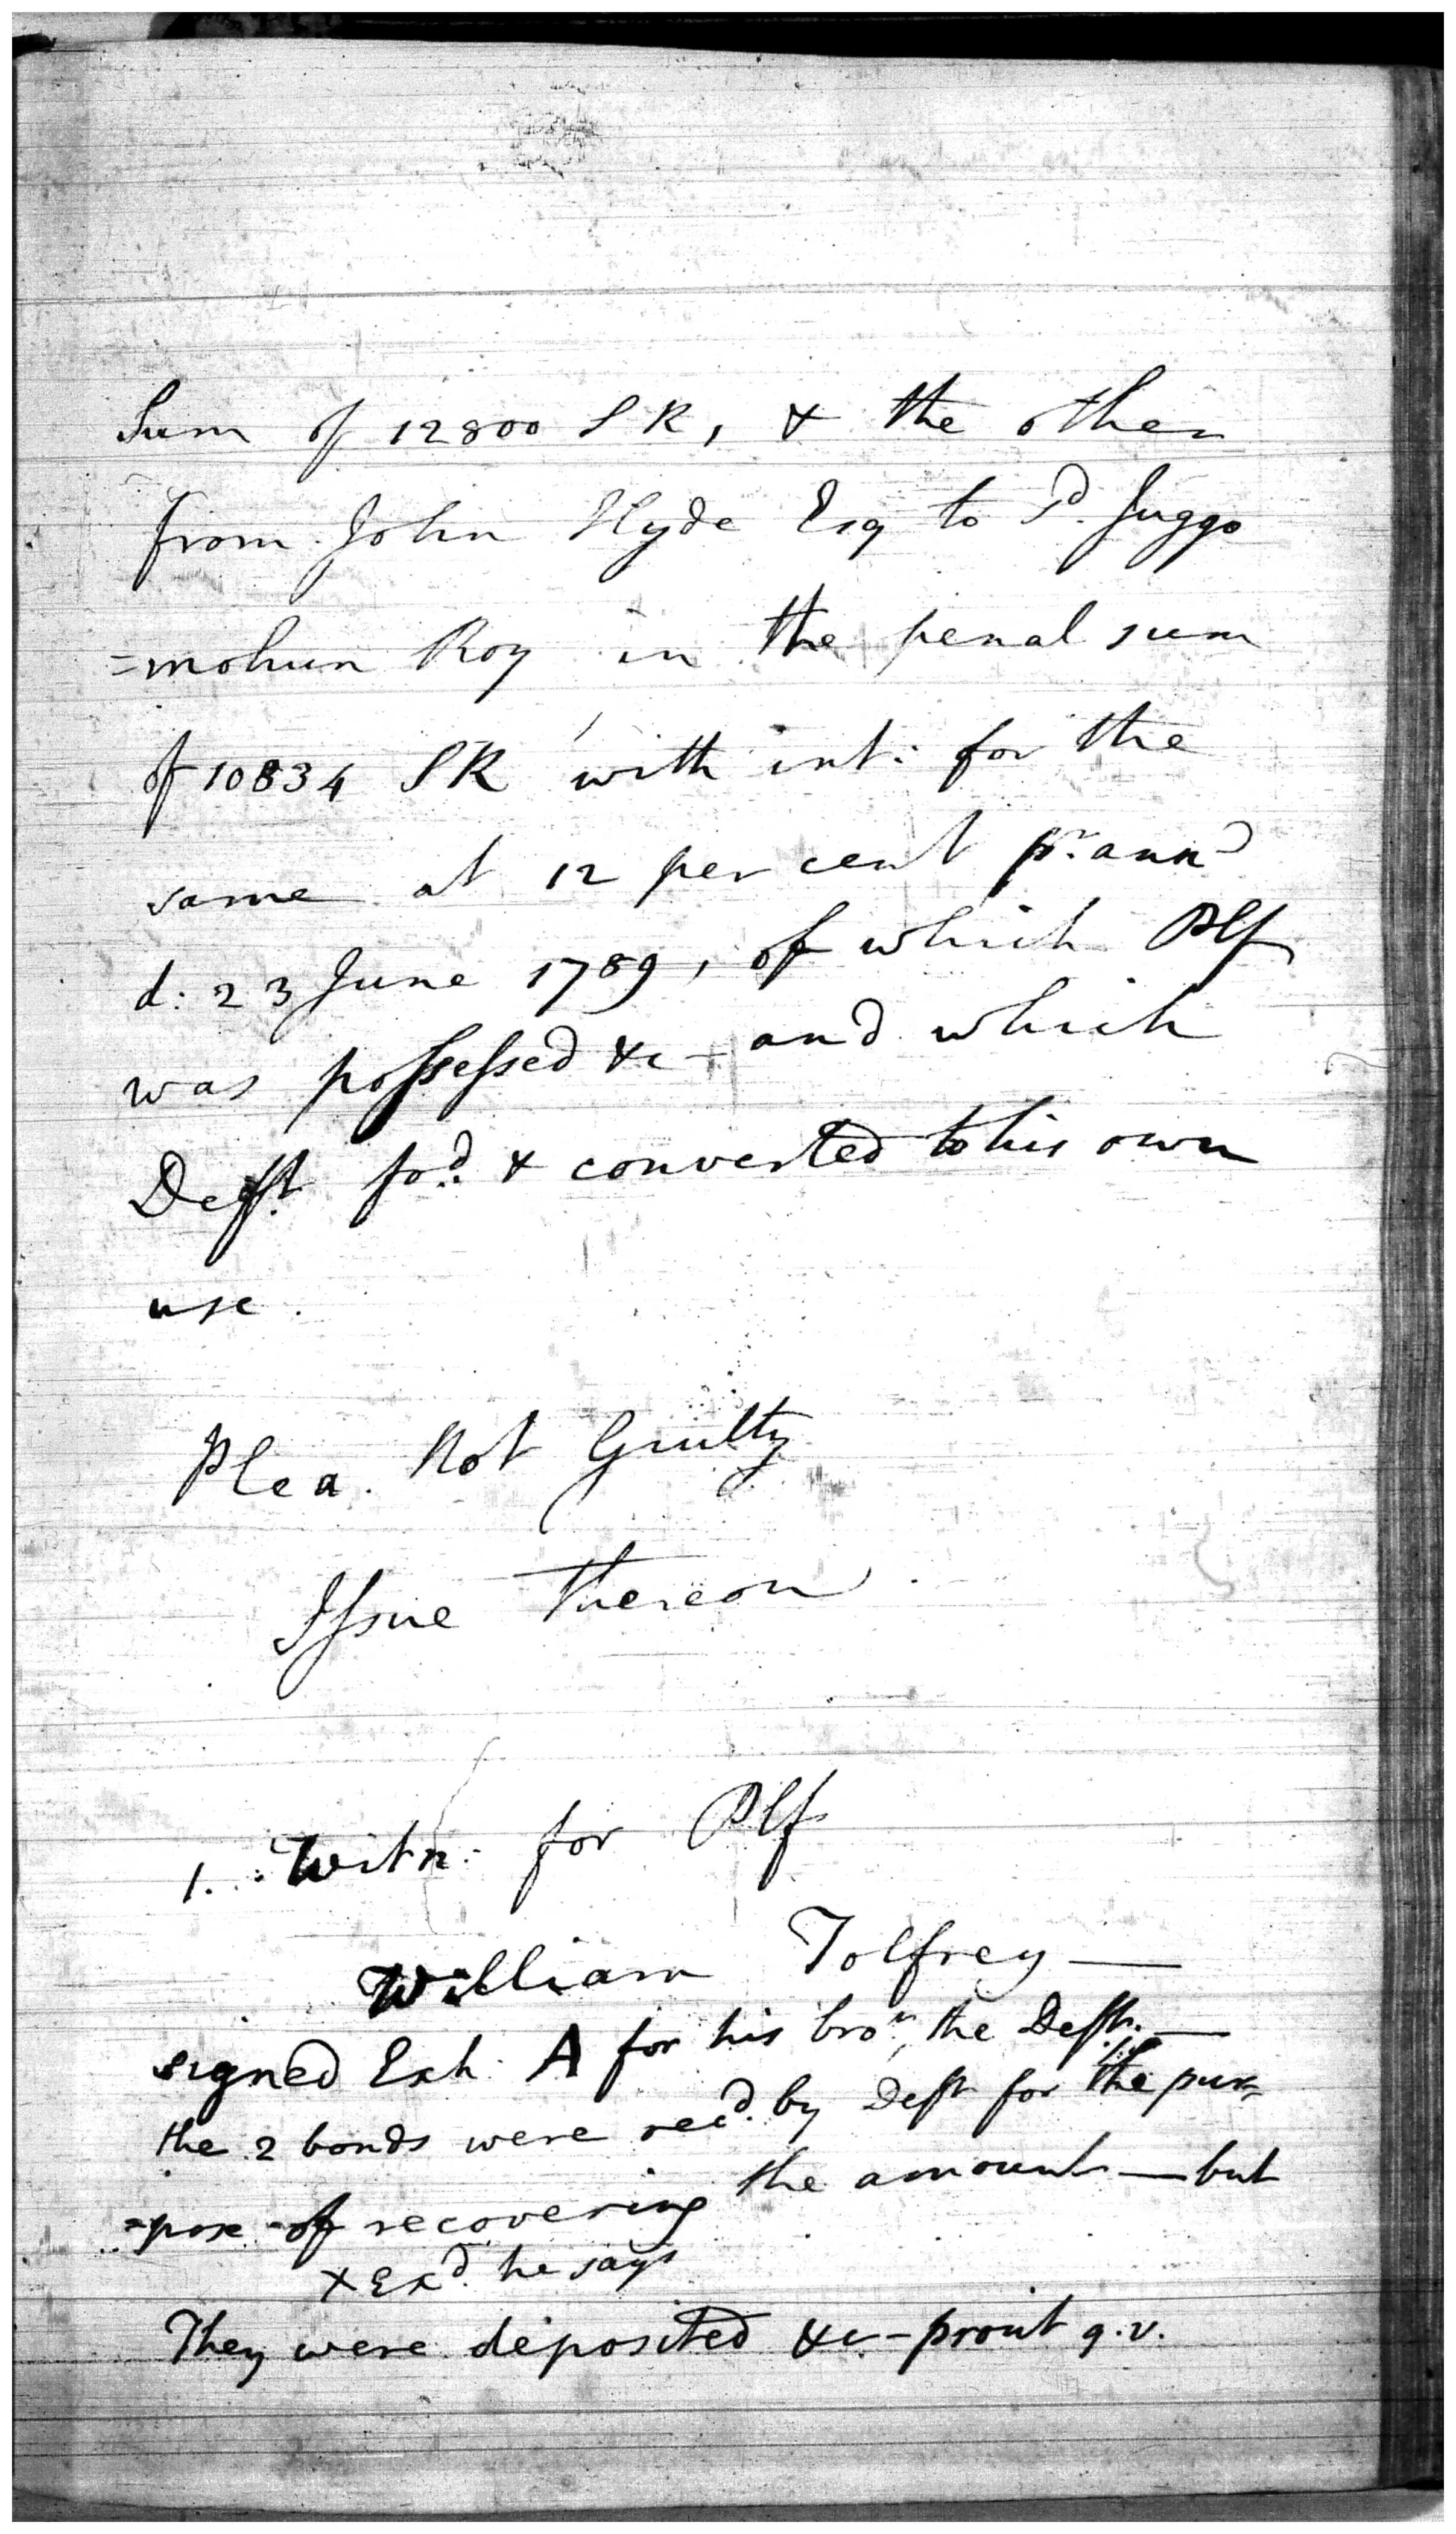 Sum of 12800 S R, & the other
from John Hyde Esq to sd. Juggo
=mohun Roy in the penal sum
of 10834 S R with int: for the
same at 12 per cent pr. annd
d: 23 June 1789, of which Plf
was possessed &c - and which
Deft. fod. & converted to his own
use.
Plea. Not Guilty
Issue thereon.
1. Witn: for Plf
William Tolfrey —
signed Exh: A for his bror. the Deft. —
the 2 bonds were recd. by Deft for the pur=
=pose of recovering the amount — but
X Exd. he says
They were deposited &c - prout q.v.